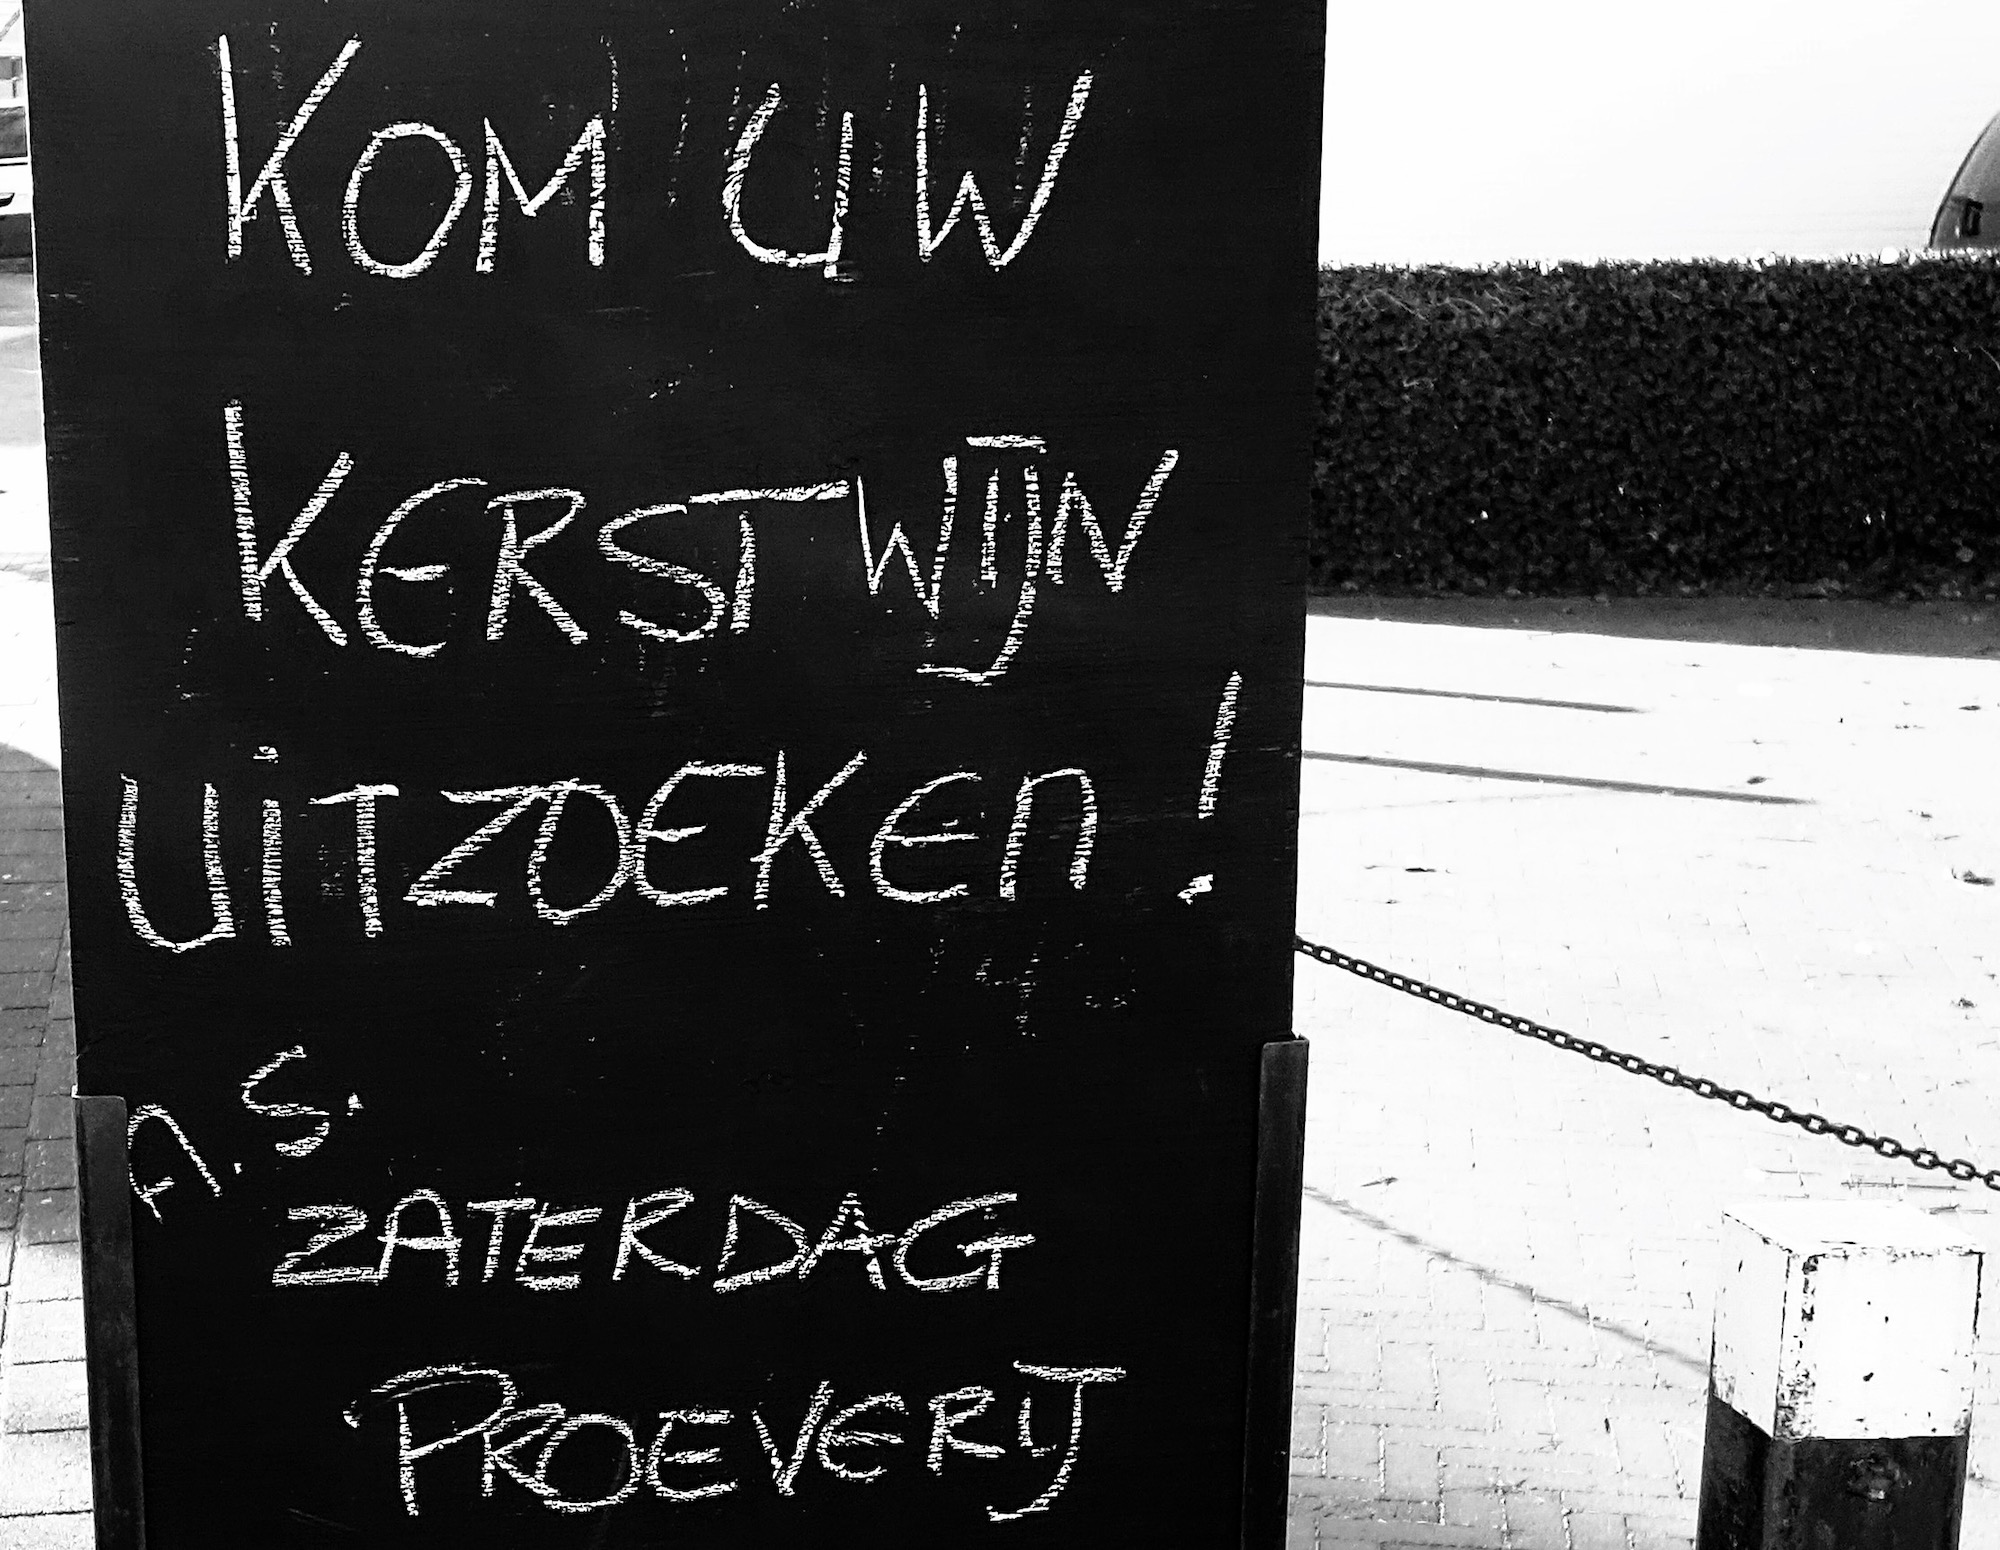 KOM UW
KERSTWIJN
UiTZOEKEn!
A.S.
ZATERDAG
PROEVERIJ